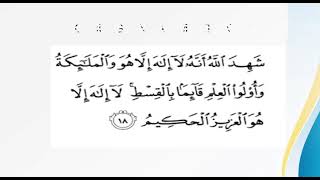 شَهِدَ اللَّهُ أَنَّهُ لَا إِلَٰهَ إِلَّا هُوَ وَالْمَلَائِكَةُ
وَأُولُوا الْعِلْمِ قَائِمًا بِالْقِسْطِ ۚ لَا إِلَٰهَ إِلَّا
هُوَ الْعَزِيزُ الْحَكِيمُ ١٨